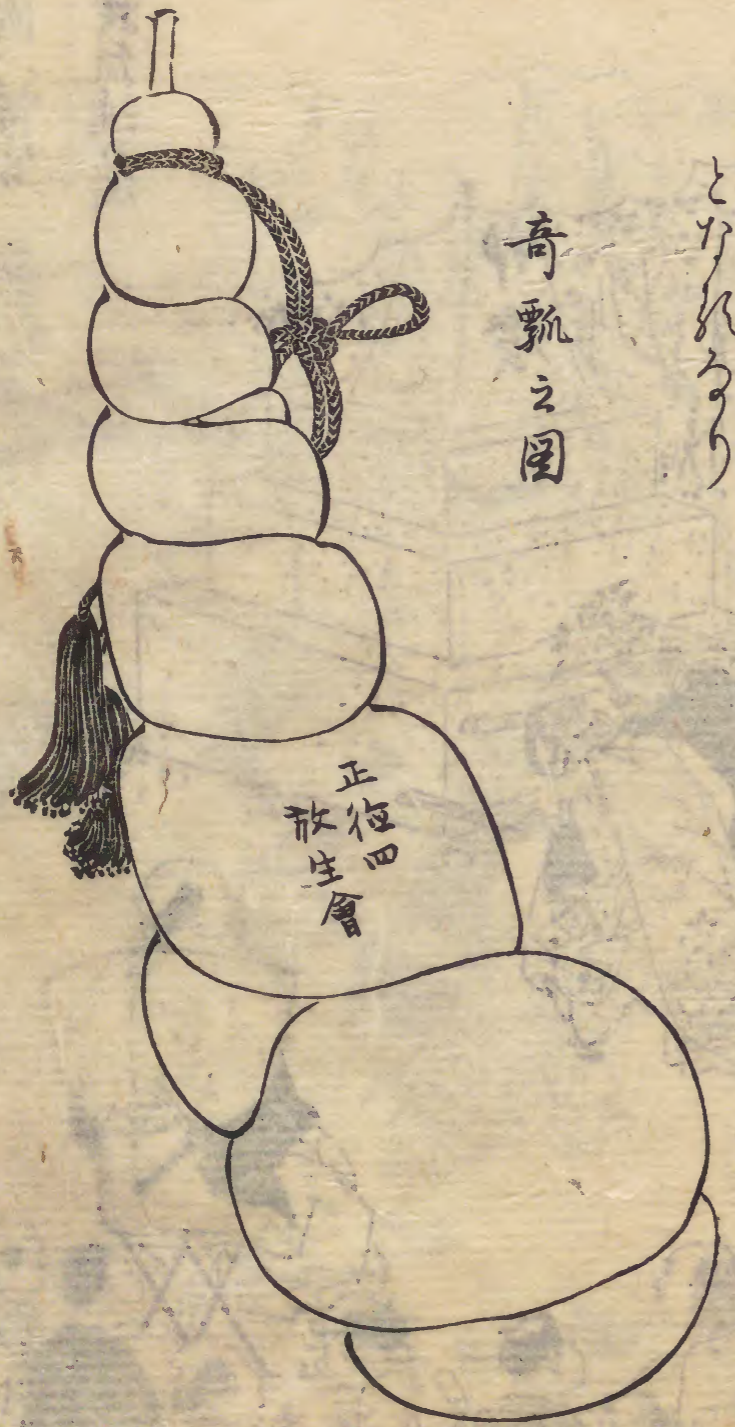 となれるなり
奇瓢之図
正徳四
放生會